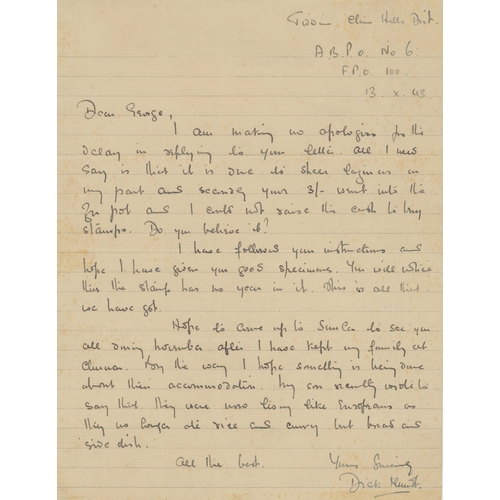 Tiddim Chin Hills Dist.
A B P O. No 6.
F.P.O. 100.
13. X. 43
Dear George,
I am making no apologies for the
delay in replying to your letter. All I need
say is that it is due to sheer laziness on
my part and secondly your 3/- went into the
pot and I could not raise the cash to buy
stamps. Do you believe it?
I have followed your instructions and
hope I have given you good specimens. You will notice
this the stamp has no year in it. This is all that
we have got.
Hope to come up to Simla to see you
all during November after I have kept my family at
By the way I hope something is being done
about their accommodation. My son recently wrote to
say that they were now living like Europeans as
they no longer ate rice and curry but bread and
side dish.
All the best. Yours Sincerely
Dick